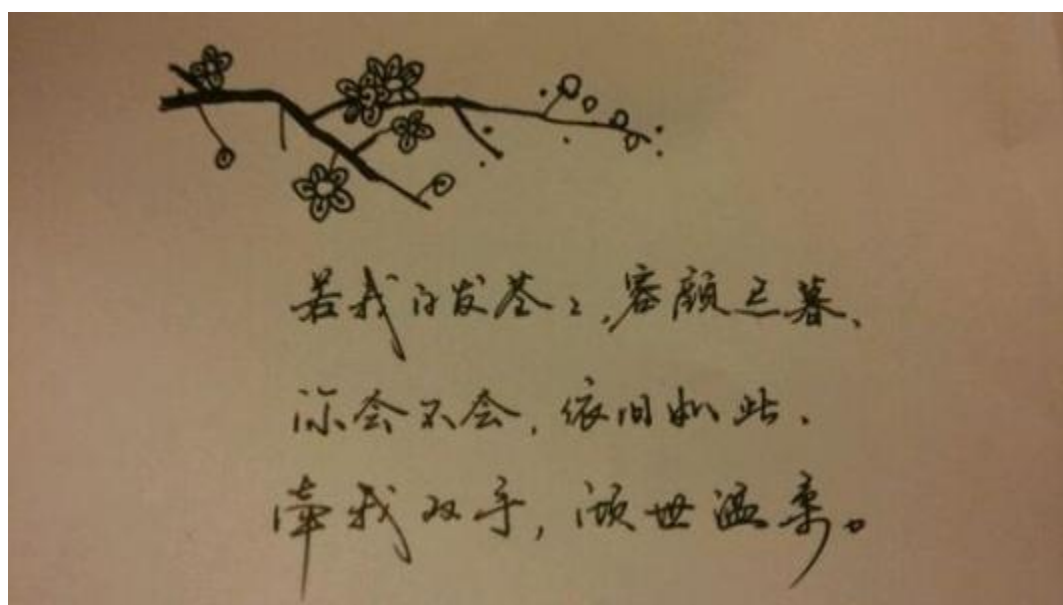 若我白发苍々,容颜已暮、
你会不会,依旧如此、
牵我双手,倾世温柔。